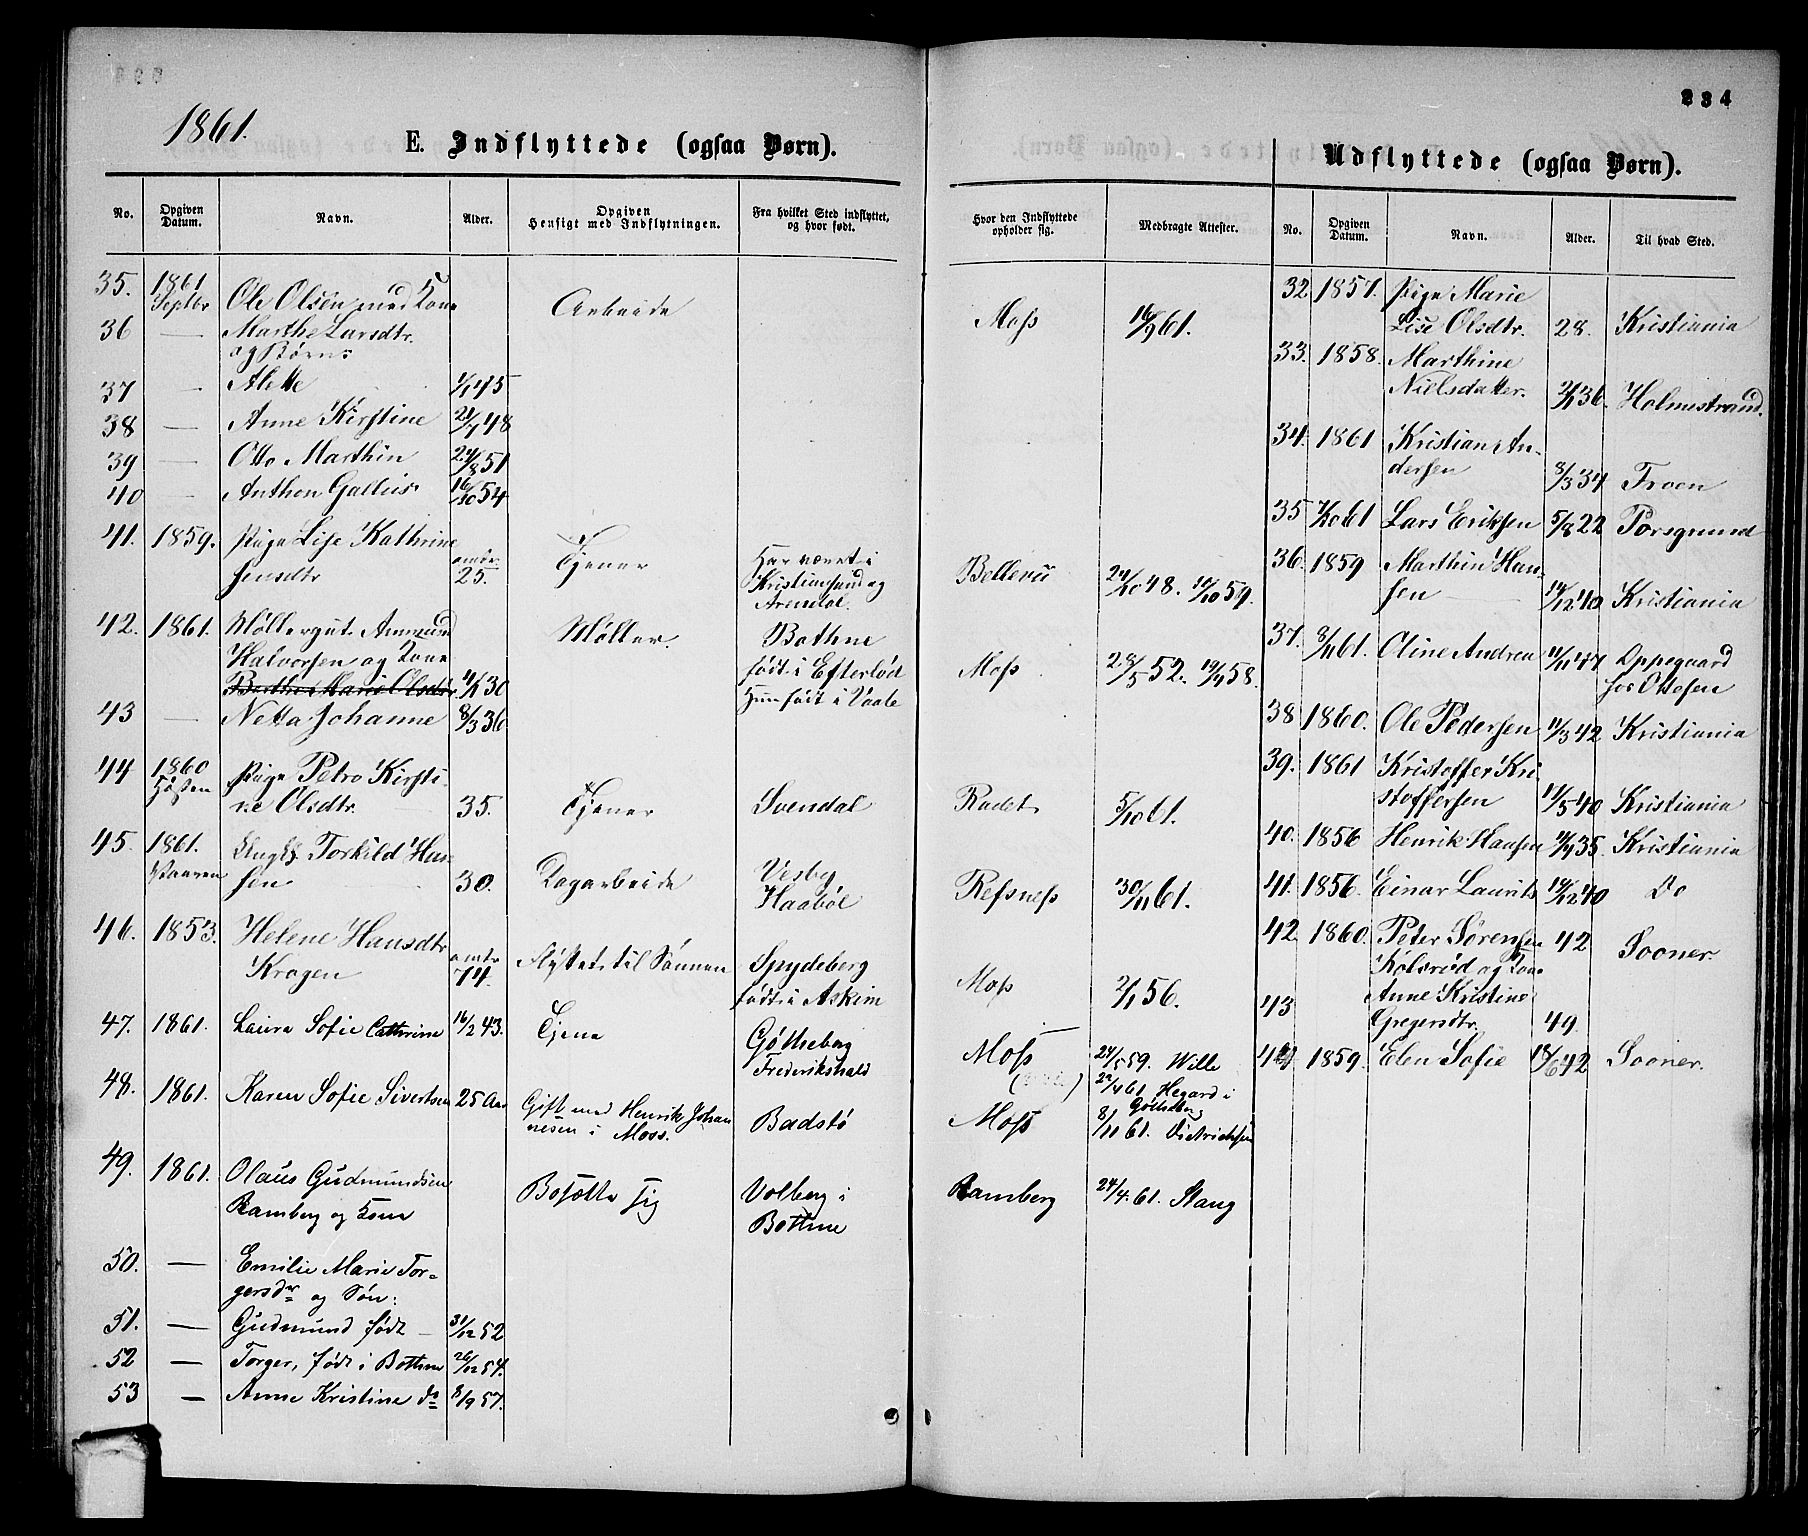 234
1861.
E. Indflyttede (ogsaa Børn).
Udflyttede (ogsaa Børn).
No. Opgiven Datum. Navn. Alder. Opgiven Hensigt med Indflytningen. Fra hvilket Sted indflyttet, og hvor født. Hvor den Indflyttede opholder sig. Medbragte Attester.
No. Opgiven Datum. Navn. Alder. Til hvad Sted.
35. 1861 Septbr Ole Olsen med Kone Arbeide Moss 16/9 61.
36 — Marthe Larsdtr.
og Børn
37 — Alette 1/1 45
38 — Anne Kirstine 48
39 — Otto Marthin 24/8 51
40 — Anthon Gallus 16/10 54
41. 1859. Pige Lise Kathrine
Jensdtr omtr 25. Tjener Har været i
Kristiansund og
Arendal. Bellevü 24/10 48. 14/10 59.
42. 1861. Møllergut Ammund
Halvorsen og Kone Møller. Bothne
født i Efterløb Moss 28/5 52. 19/4 58.
Berthe Marie Olsdtr 4/1 30 Hun født i Vaale
43 — Netta Johanne 8/3 36
44 1860 Høsten Pige Petro Kirsti-
ne Olsdtr. 35. Tjener Svendal Radet 5/10 61.
45. 1861. Vaaren Ungk. Torkild Han-
sen 30. Dagarbeide Vesby
Haabøl Refsness 30/11 61.
46. 1853. Helene Hansdtr
Kragen omtr 74. Flyttet til Sønnen Spydeberg
født i Askim Moss 2/1 56.
47. 1861. Laura Sofie Cathrine 16/2 43. Tjene Gøtheberg
Frederikshald Moss 24/5 59. Wille
22/4 61 Hegard i
Gøtheberg
48. 1861. Karen Sofie Sivertsen 25 Aar Gift med Henrik Johan
nesen i Moss. Badstø Moss 8/11 61. Dietrichsen
49. 1861. Olaus Gudmundsen
Ramberg og Kone Bosætte sig Volberg i
Bothne Ramberg 24/4. 61. Stang
50. — Emilie Marie Tor-
gersdr og Søn:
51. — Gudmund født — 31/12 52
52 — Torger, født i Bothne 26/12 54.
53 — Anne Kristine do 8/9 57.
32 1857. Pige Marie
Lise Olsdtr. 28. Kristiania
33. 1858. Marthine
Nielsdatter. 36. Holmestrand.
34. 1861 Kristian An-
dersen 8/3 34 Froen
35 7/10 61 Lars Eriksen 5/8 22 Porsgrund
36. 1859 Marthin Han-
sen 14/12 40 Kristiania
37. 8/11 61. Oline Andrea 11/11 47 Oppegaard
hos Ottesen
38 1860. Ole Pedersen 11/3 42 Kristiania
39. 1861 Kristoffer Kri
stoffersen 14/5 40 Kristiania
40. 1856 Henrik Hansen 35. Kristiania
41. 1856. Einar Laurits 14/12 40 Do
42 1860. Peter Sørensen
Kolsrød og Kone 42 Sooner.
43 Anne Kristine
Gregersdtr. 49.
44 1859. Elen Sofie 18/6 42 Sooner.